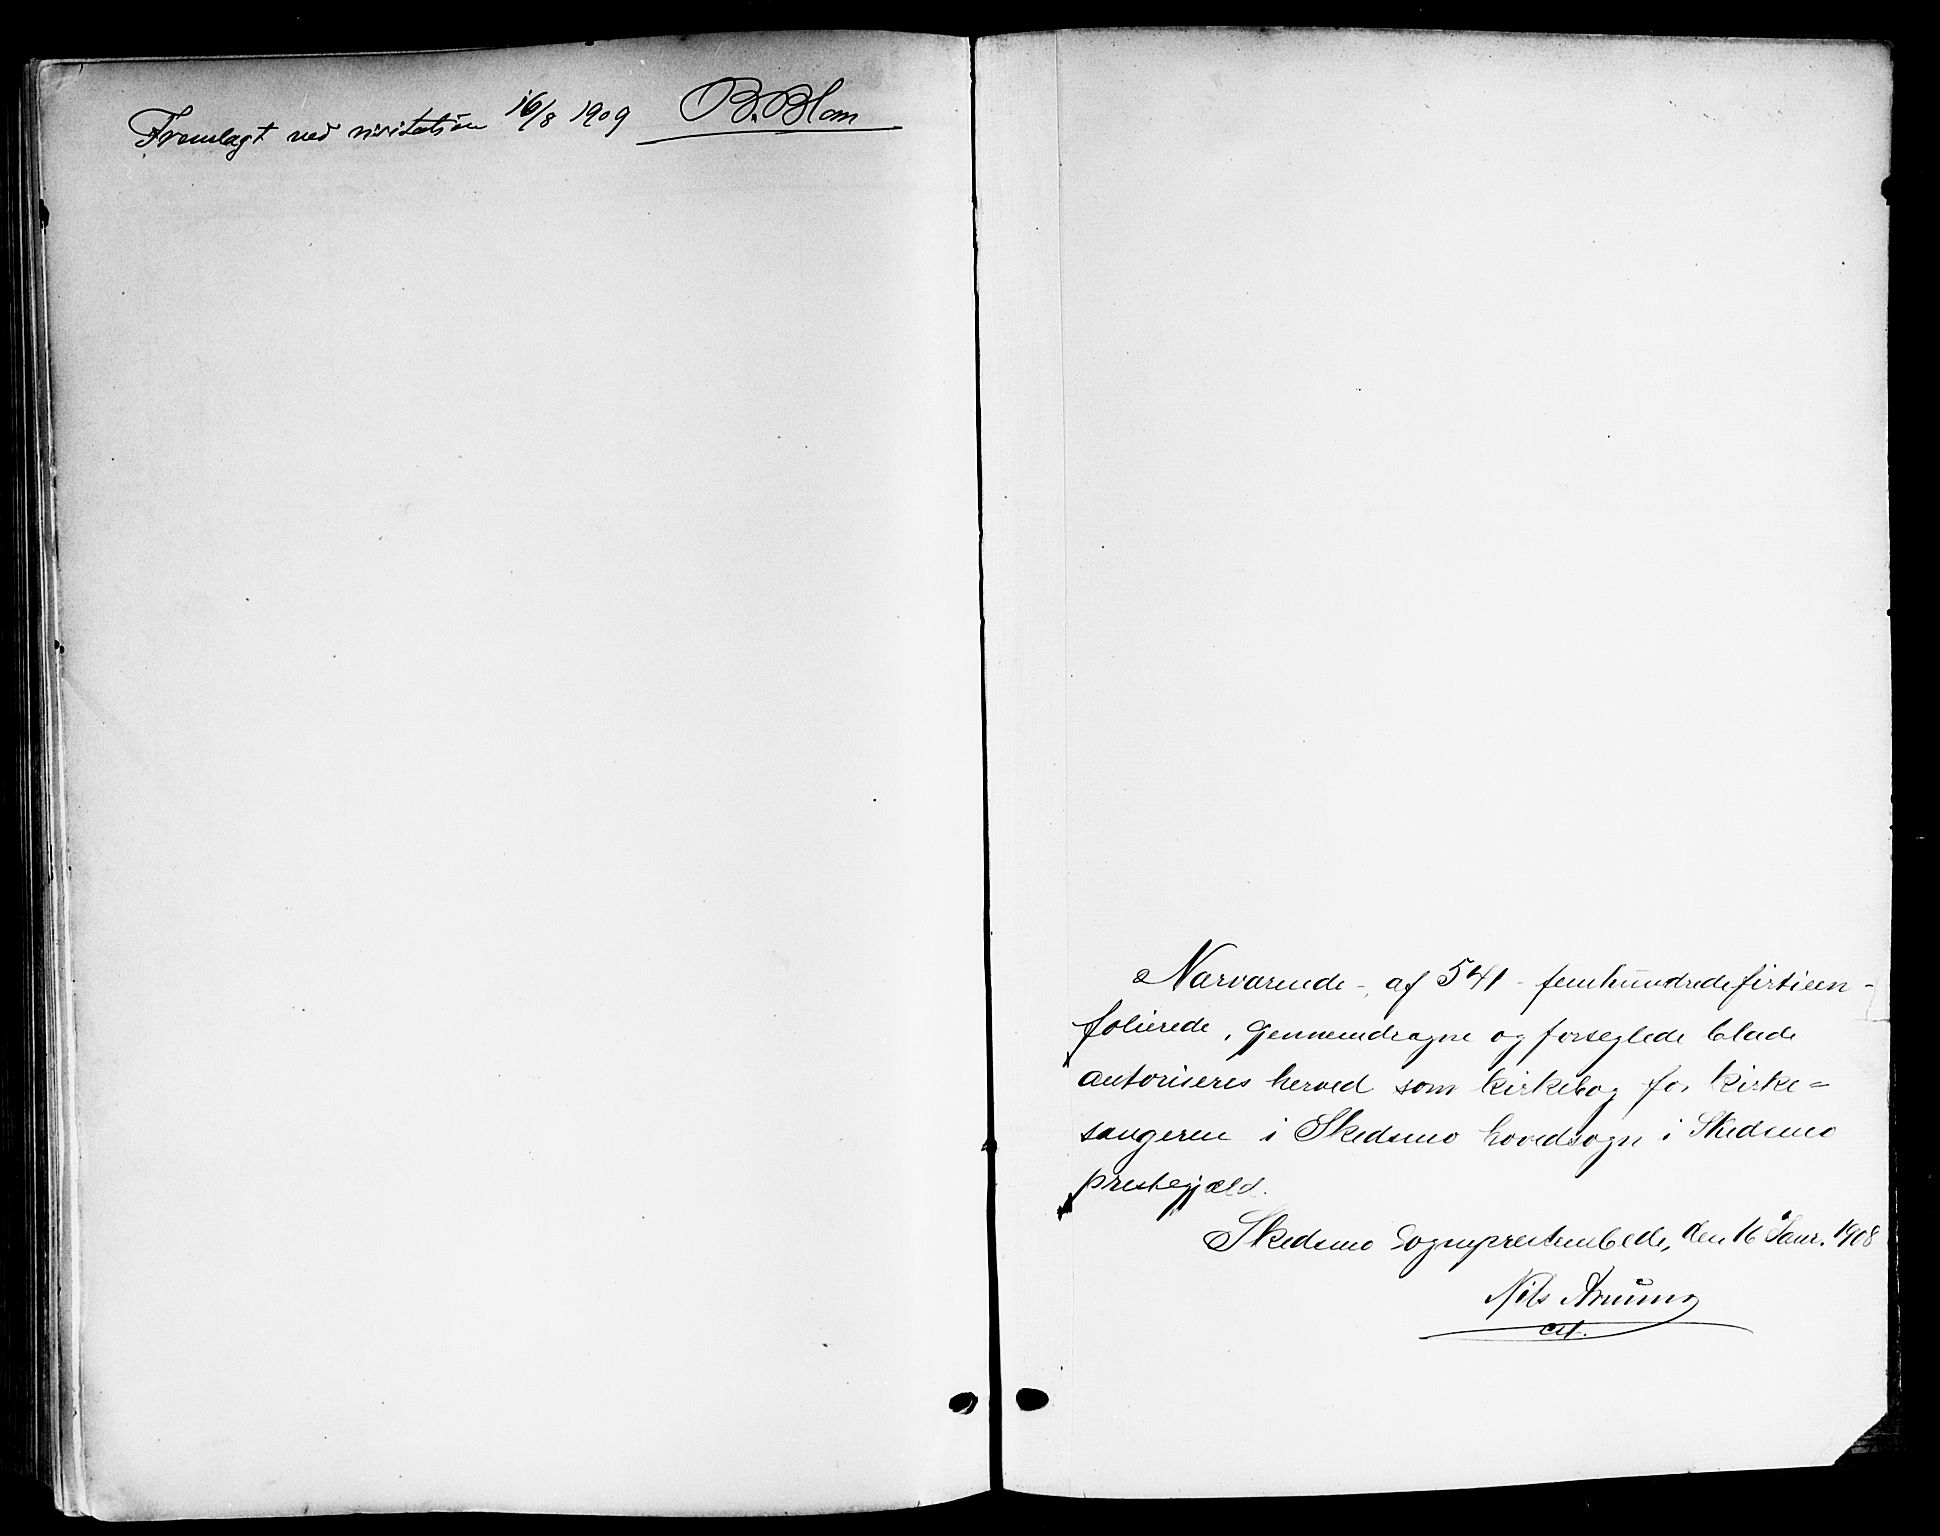 Fremlagt ved visitation 16/8 1909 B. Blom
Nærværende - af 541 - femhundredefirtieen -
folierede, gjennemdragne og forseglede blade
autoriseres herved som kirkebog for kirke=
sangeren i Skedsmo hovedsogn i Skedsmo
prestegjæld.
Skedsmo sogneprestembede, den 16 Janr. 1908
Nils
cst.